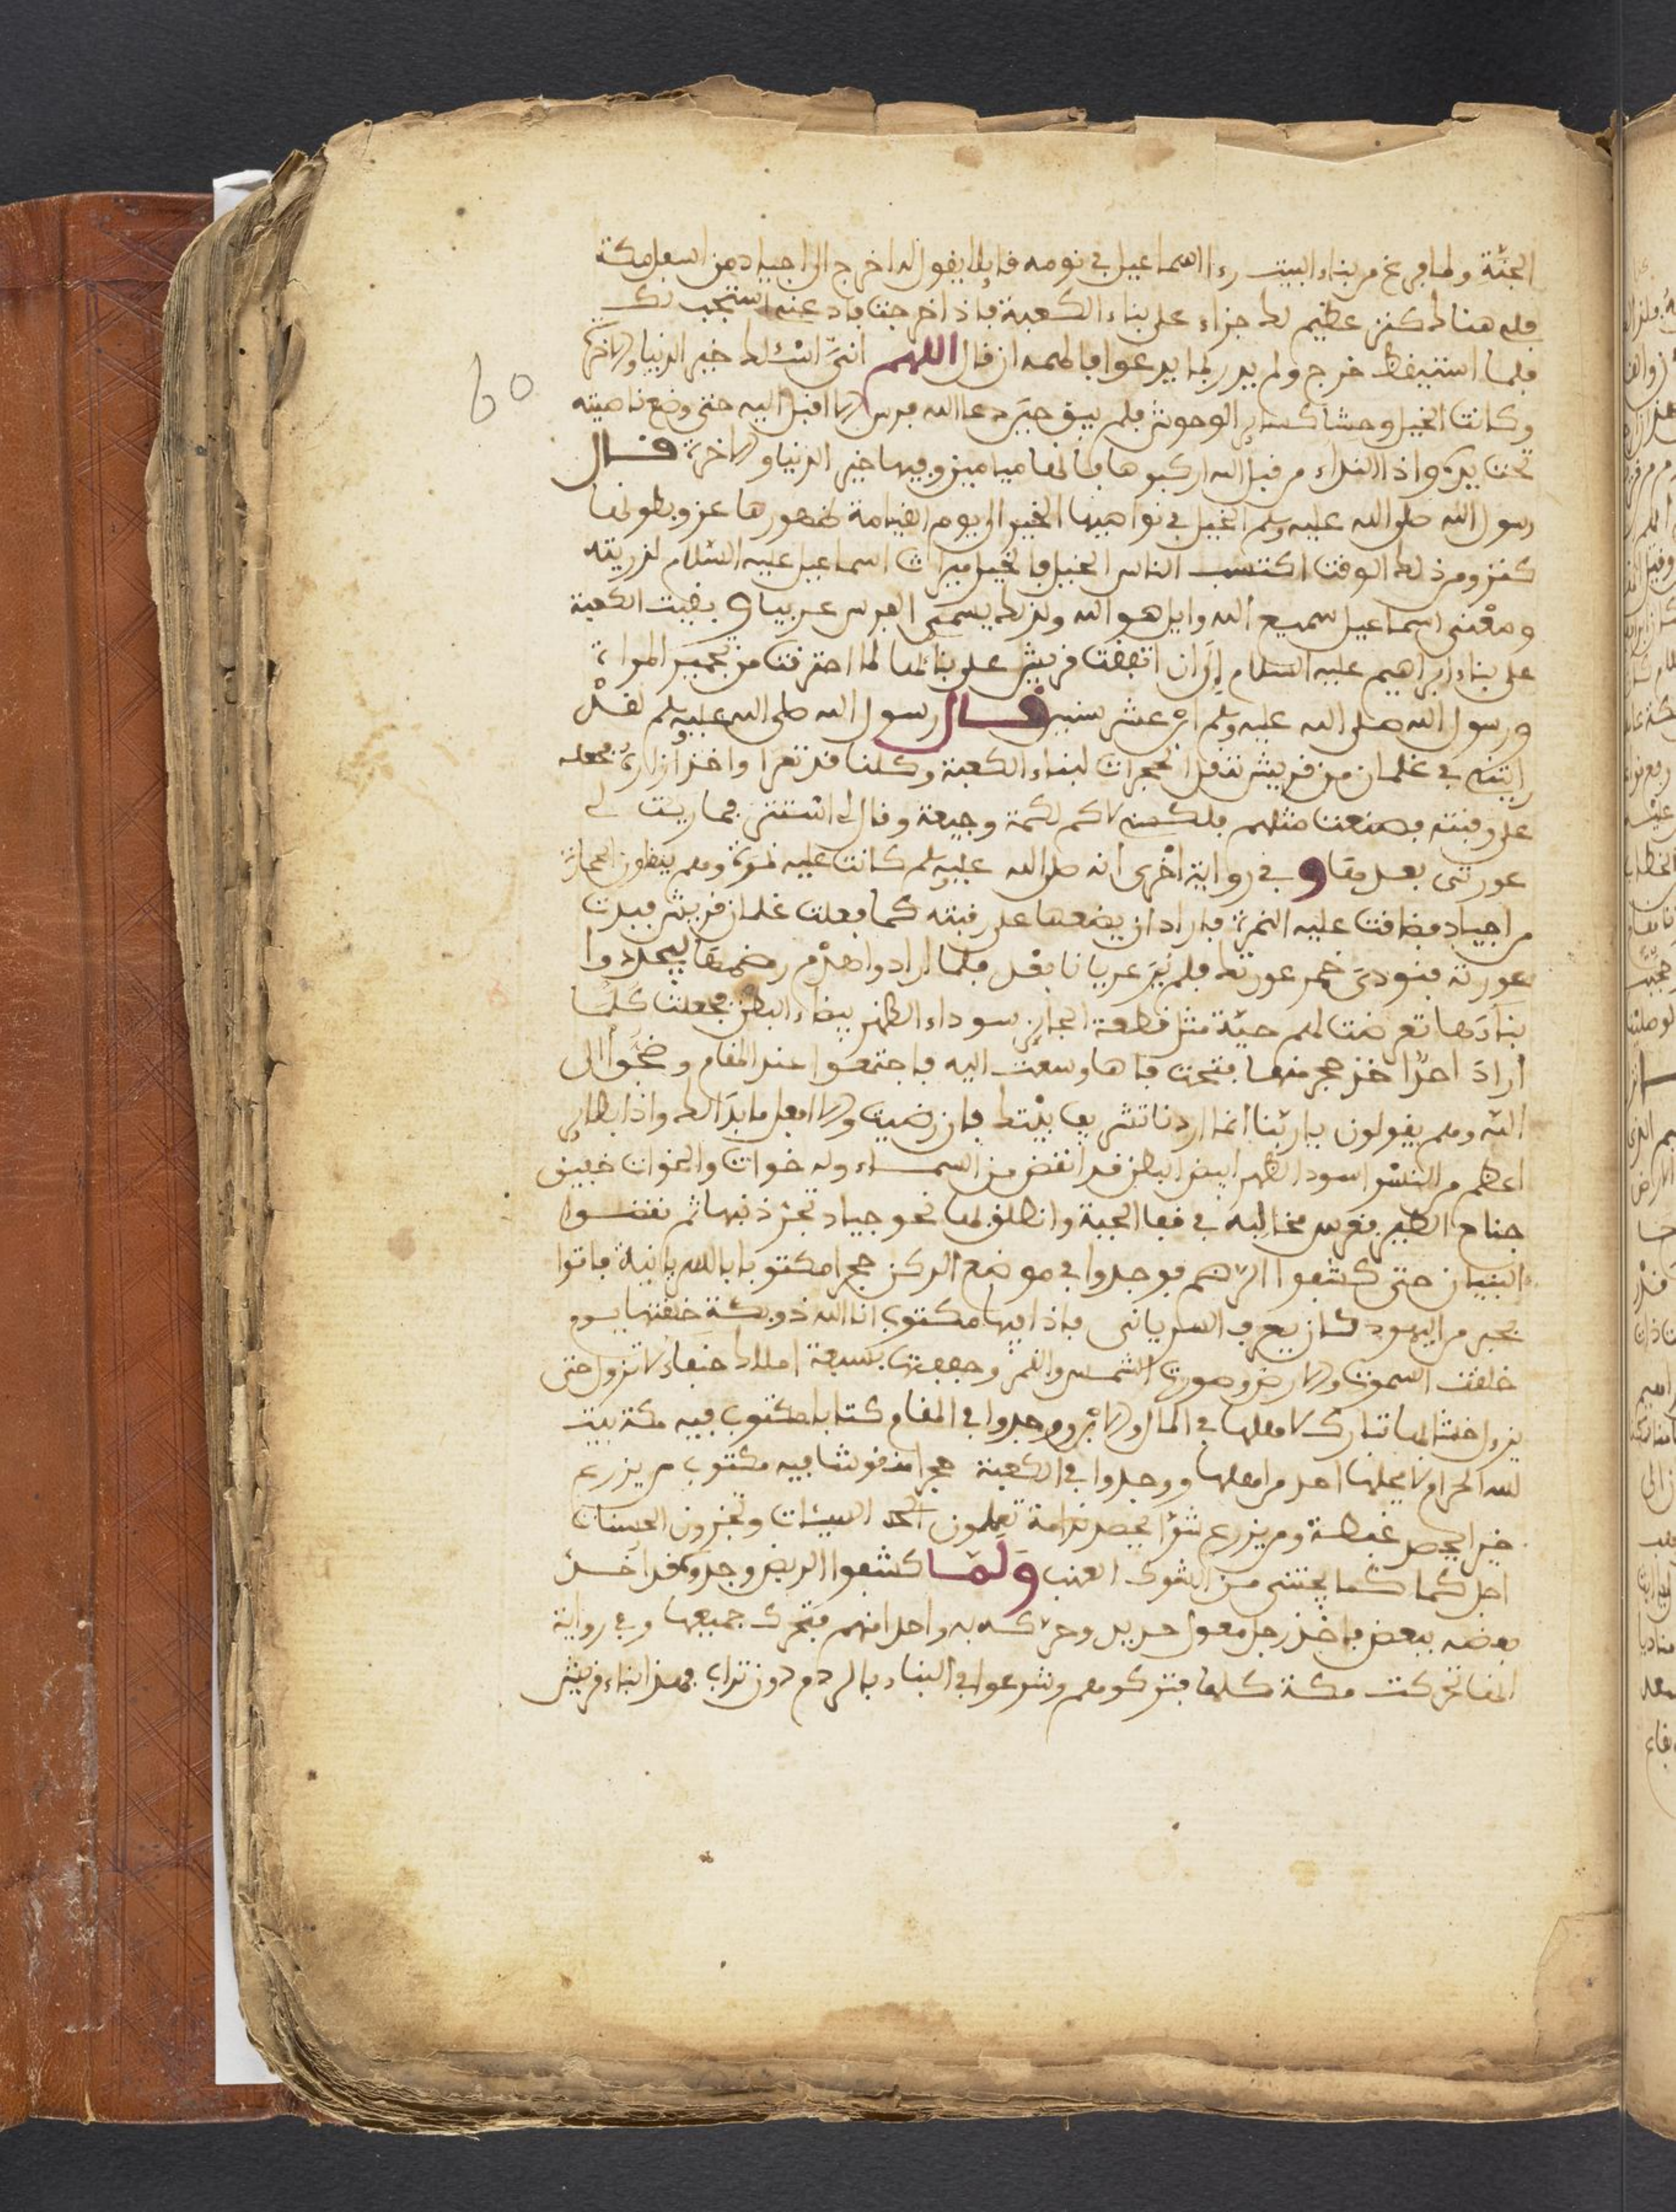 الجنة ولما فرغ من بناء البيت رءا اسماعيل في نومه قايلا يقول له اخرج الى اجياد من اسفل مكة
فلك هناك كنز عظيم لك جزاء على بناء الكعبة فاذا خرجت فادعه استجب لك
فلما استيقظ خرج ولم يدر بما يدعوا فالهمه ان قال اللهم اني اسئلك خير الدنيا والاخرة
وكانت الخيل وحشا كساير الوحوش فلم يبق حين دعا الله فرس الا اقبل اليه حتى وضع ناصيته
تحت يده واذا النداء من قبل الله اركبوها فانها ميامين وفيها خير الدنيا والاخرة قال
رسول الله صلى الله عليه وسلم الخيل في نواصيها الخير الى يوم القيامة ظهورها عز وبطونها
كنز ومن ذلك الوقت اكتسب الناس الخيل فالخيل ميراث اسماعيل عليه السلام لذريته
ومعنى اسماعيل سميع الله وايل هو الله ولذلك يسمى الفرس عربيا وبقيت الكعبة
على بناء ابراهيم عليه السلام الى ان اتفقت قريش على بنائها لما احترقت من تجمير المراة
ورسول الله صلى الله عليه وسلم ابن عشر سنين قال رسول الله صلى الله عليه وسلم لقد
رايتني في غلمان من قريش ننقل الحجرات لبناء الكعبة وكلنا قد تعرا واخذ ازاره فجعله
على رقبته فصنعت مثلهم فلكمني لاكم لكمة وجيعة وقال لي استتر فما ريت لي
عورتي بعد وفي رواية اخرى انه صلى الله عليه وسلم كانت عليه نمرة وهم ينقلون الحجارة
من اجياد فضاقت عليه النمرة فاراد ان يضعها على رقبته كما فعلت غلمان قريش فبدت
عورته فنودي خمر عورتك فلم ير عريانا بعد فلما ارادوا هدم ليجددوا
بناءها تعرضت لهم حية مثل قطعة سوداء الظهر بيضاء البطن فجعلت كلما
اراد احد اخذ حجر منها فتحت فاها وسعت اليه فاجتمعوا عند المقام وضجوا الى
الله وهم يقولون يا ربنا انما اردنا تشريف بيتك فان رضيت والا افعل ما بدا لك واذا بطاير
اعظم من النسر اسود الظهر ابيض البطن قد انقض من السماء وله خوات والخوات خفيف
جناح الطير فغرس مخالبه في قفا الحية وانطلق بها نحو جياد تجر ذنبها ثم نقضوا
البنيان حتى كشفوا فوجدوا في موضع الركن حجرا مكتوبا فاتوا
بحبر من اليهود كان يعرف السرياني فاذا فيها مكتوب انا الله ذو بكة خلقتها يوم
خلقت السموت والارض وصورت الشمس والقمر وحففتها بسبعة املاك حنفاء لا تزول حتى
يزول اخشباها تبارك لاهلها في الما ووجدوا في المقام كتابا مكتوب فيه مكة بيت
الله الحرام لا يحلها احد من اهلها ووجدوا في الكعبة حجرا منقوشا فيه مكتوب من يزرع
خيرا يحصد غبطة ومن يزرع شرا يحصد ندامة تعملون السيئات وتجزون الحسنات
اجل كما يجتنى من الشوك العنب ولما كشفوا الربض وجدوه قد اخذ
بعضه ببعض فاخذ رجل معول حديد وحرك به واحدا منهم فتحرك جميعها وفي رواية
انها تحركت مكة كلها فتركوهم وشرعوا في البناء بالردم دون تراب فهذا بناء قريش
60